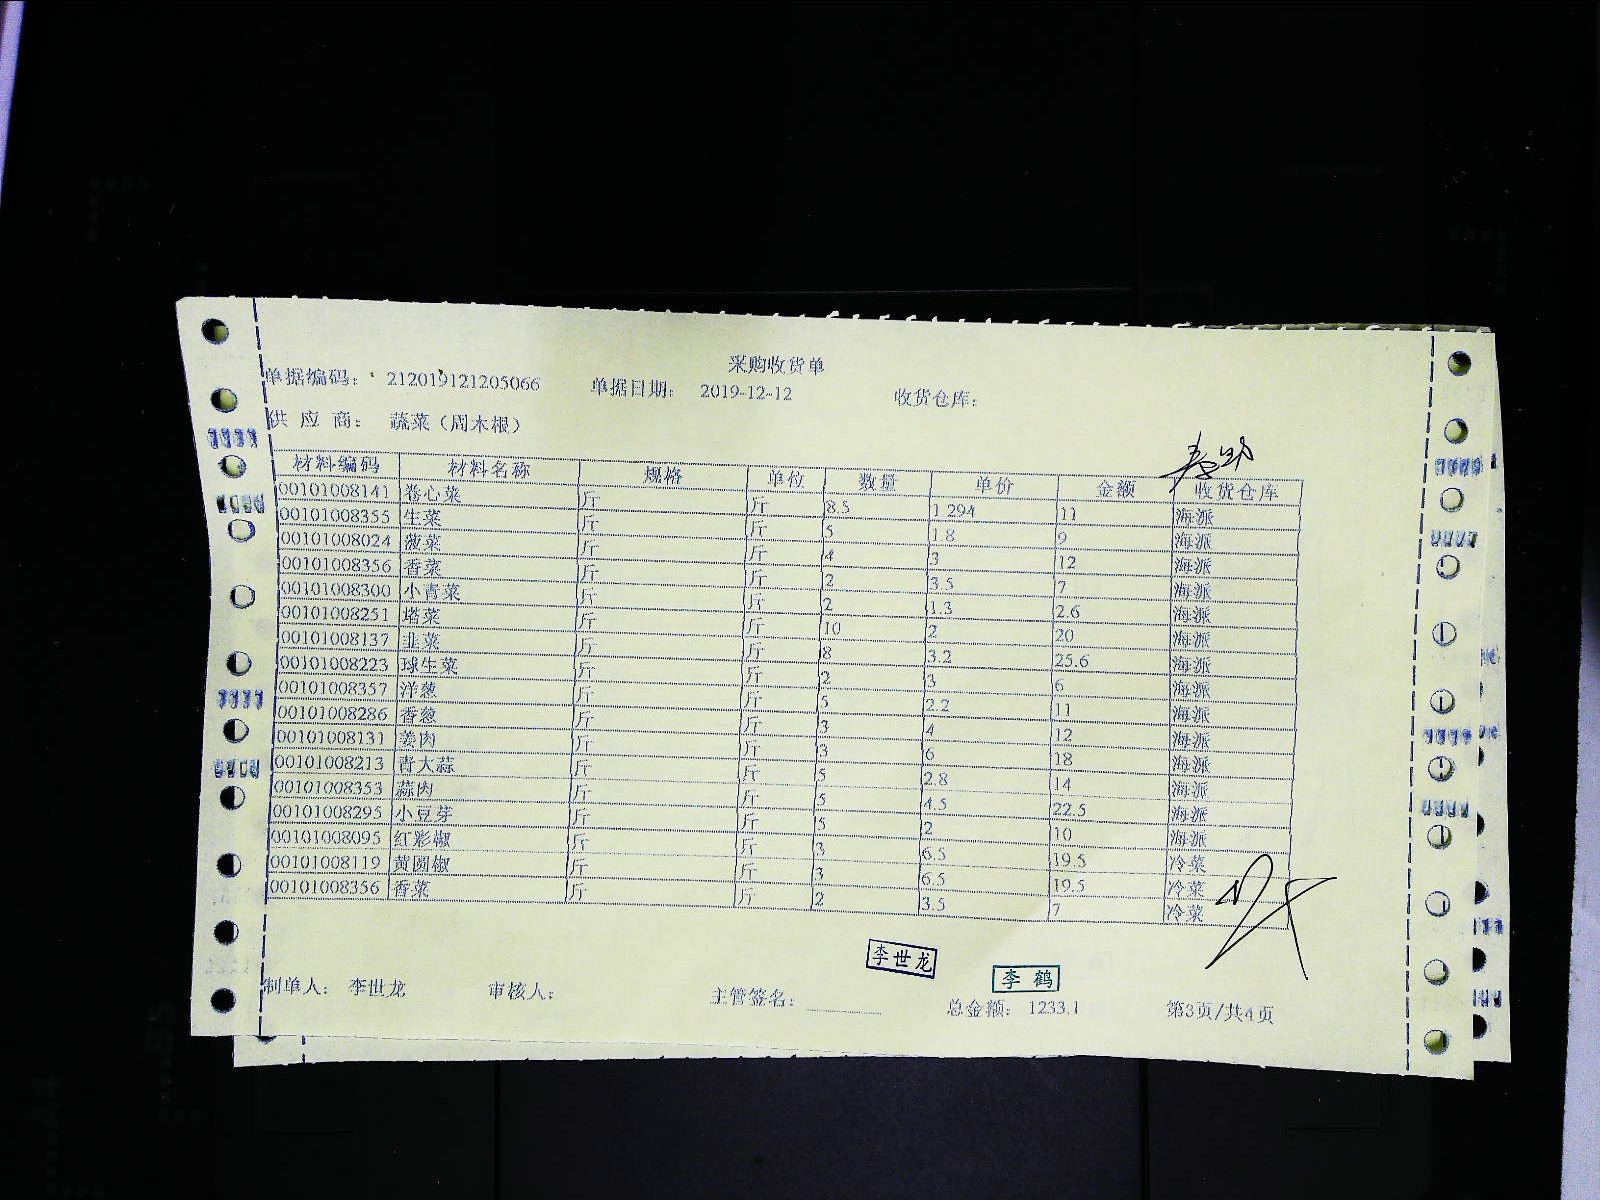 采购收货单
单据编码： 212019121205066 单据日期： 2019-12-12 收货仓库：
供 应 商： 蔬菜（周木根）
材料编码 材料名称 规格 单位 数量 单价 金额 收货仓库
00101008141 卷心菜 斤 斤 8.5 1.294 11 海派
00101008355 生菜 斤 斤 5 1.8 9 海派
00101008024 菠菜 斤 斤 4 3 12 海派
00101008356 香菜 斤 斤 2 3.5 7 海派
00101008300 小青菜 斤 斤 2 1.3 2.6 海派
00101008251 塔菜 斤 斤 10 2 20 海派
00101008137 韭菜 斤 斤 8 3.2 25.6 海派
00101008223 球生菜 斤 斤 2 3 6 海派
00101008357 洋葱 斤 斤 5 2.2 11 海派
00101008286 香葱 斤 斤 3 4 12 海派
00101008131 姜肉 斤 斤 3 6 18 海派
00101008213 青大蒜 斤 斤 5 2.8 14 海派
00101008353 蒜肉 斤 斤 5 4.5 22.5 海派
00101008295 小豆芽 斤 斤 5 2 10 海派
00101008095 红彩椒 斤 斤 3 6.5 19.5 冷菜
00101008119 黄圆椒 斤 斤 3 6.5 19.5 冷菜
00101008356 香菜 斤 斤 2 3.5 7 冷菜
李世龙
李鹤
制单人： 李世龙 审核人： 主管签名： 总金额： 1233.1 第3页/共4页